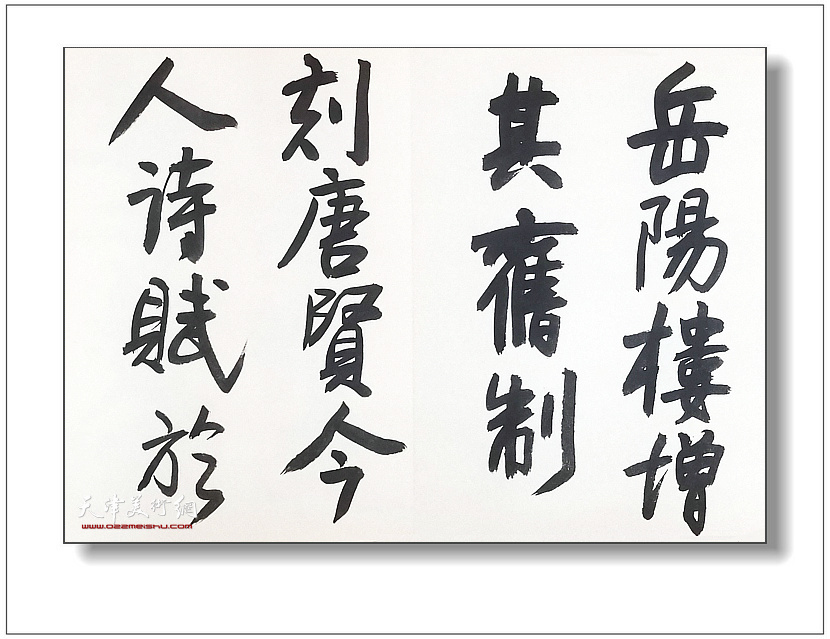 岳陽樓增
其舊制
刻唐賢今
人诗賦於
天津美術網
www.022meishu.com